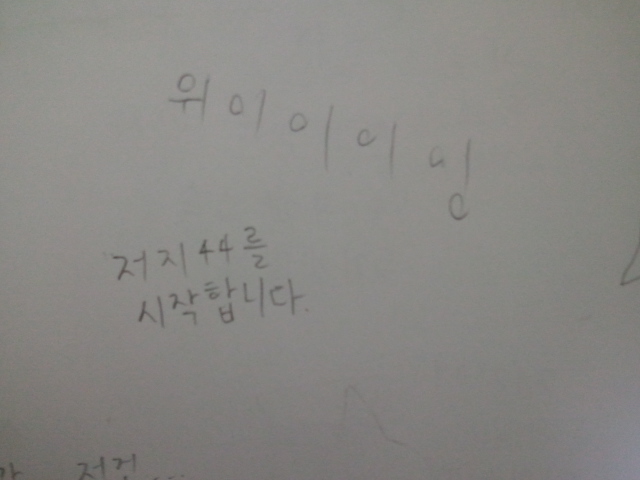 위이이이잉
저지44를
시작합니다.